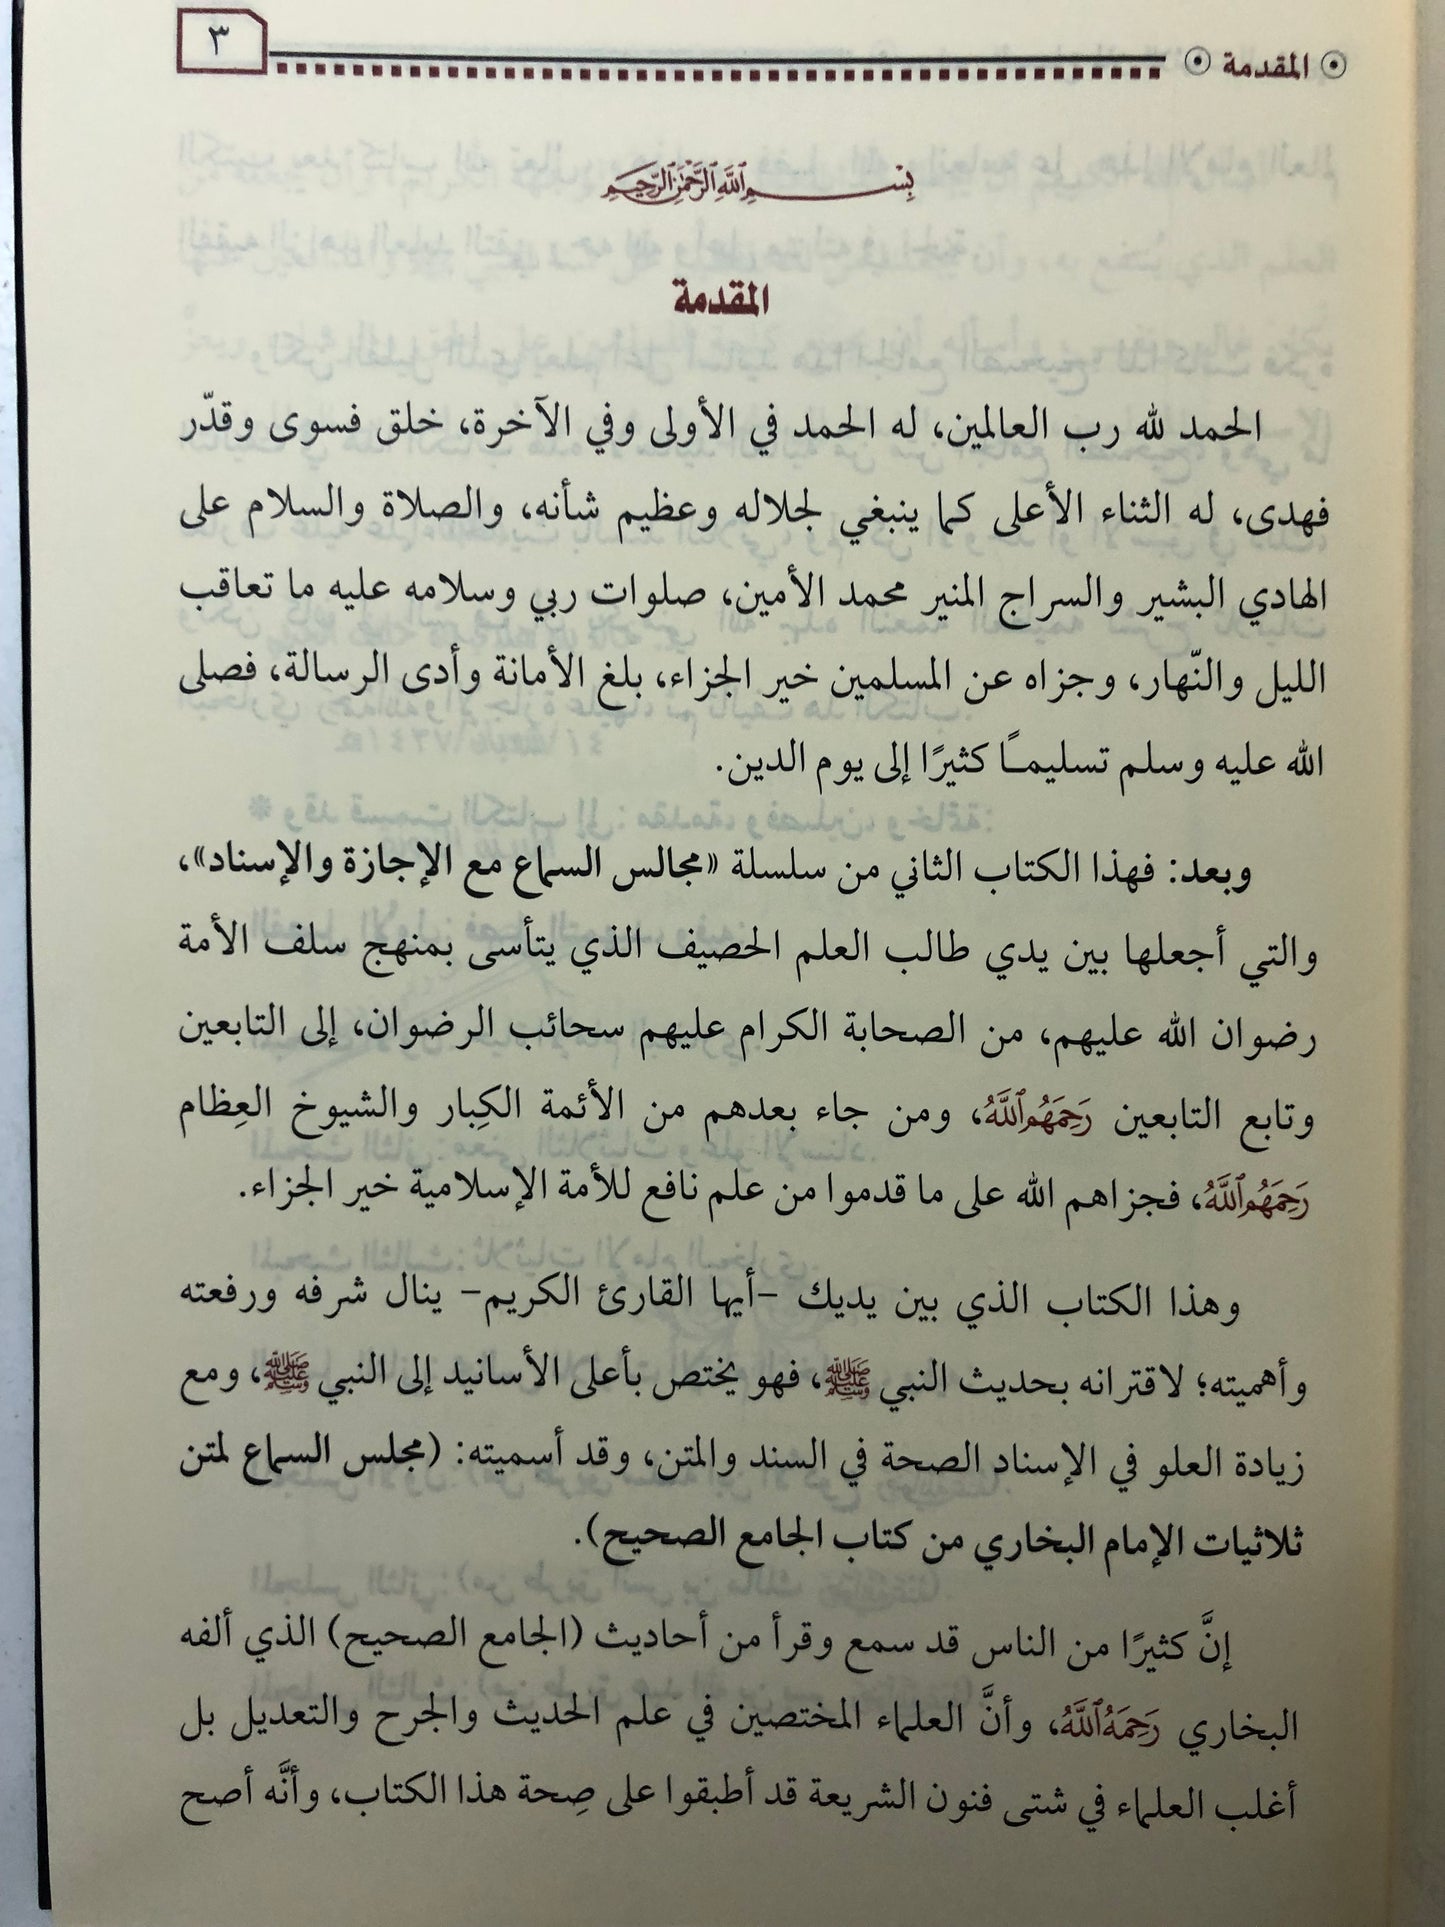 المقدمة ٣
بِسْمِ ٱللَّهِ ٱلرَّحْمَٰنِ ٱلرَّحِيمِ
المقدمة
الحمد لله رب العالمين، له الحمد في الأولى وفي الآخرة، خلق فسوى وقدّر
فهدى، له الثناء الأعلى كما ينبغي لجلاله وعظيم شأنه، والصلاة والسلام على
الهادي البشير والسراج المنير محمد الأمين، صلوات ربي وسلامه عليه ما تعاقب
الليل والنّهار، وجزاه عن المسلمين خير الجزاء، بلغ الأمانة وأدى الرسالة، فصلى
الله عليه وسلم تسليمـًا كثيرًا إلى يوم الدين.
وبعد: فهذا الكتاب الثاني من سلسلة «مجالس السماع مع الإجازة والإسناد»،
والتي أجعلها بين يدي طالب العلم الحصيف الذي يتأسى بمنهج سلف الأمة
رضوان الله عليهم، من الصحابة الكرام عليهم سحائب الرضوان، إلى التابعين
وتابع التابعين رَحِمَهُمُ ٱللَّهُ، ومن جاء بعدهم من الأئمة الكِبار والشيوخ العِظام
رَحِمَهُمُ ٱللَّهُ، فجزاهم الله على ما قدموا من علم نافع للأمة الإسلامية خير الجزاء.
وهذا الكتاب الذي بين يديك -أيها القارئ الكريم- ينال شرفه ورفعته
وأهميته؛ لاقترانه بحديث النبي ﷺ، فهو يختص بأعلى الأسانيد إلى النبي ﷺ، ومع
زيادة العلو في الإسناد الصحة في السند والمتن، وقد أسميته: (مجلس السماع لمتن
ثلاثيات الإمام البخاري من كتاب الجامع الصحيح).
إنَّ كثيرًا من الناس قد سمع وقرأ من أحاديث (الجامع الصحيح) الذي ألفه
البخاري رَحِمَهُ ٱللَّهُ، وأنَّ العلماء المختصين في علم الحديث والجرح والتعديل بل
أغلب العلماء في شتى فنون الشريعة قد أطبقوا على صِحة هذا الكتاب، وأنَّه أصح